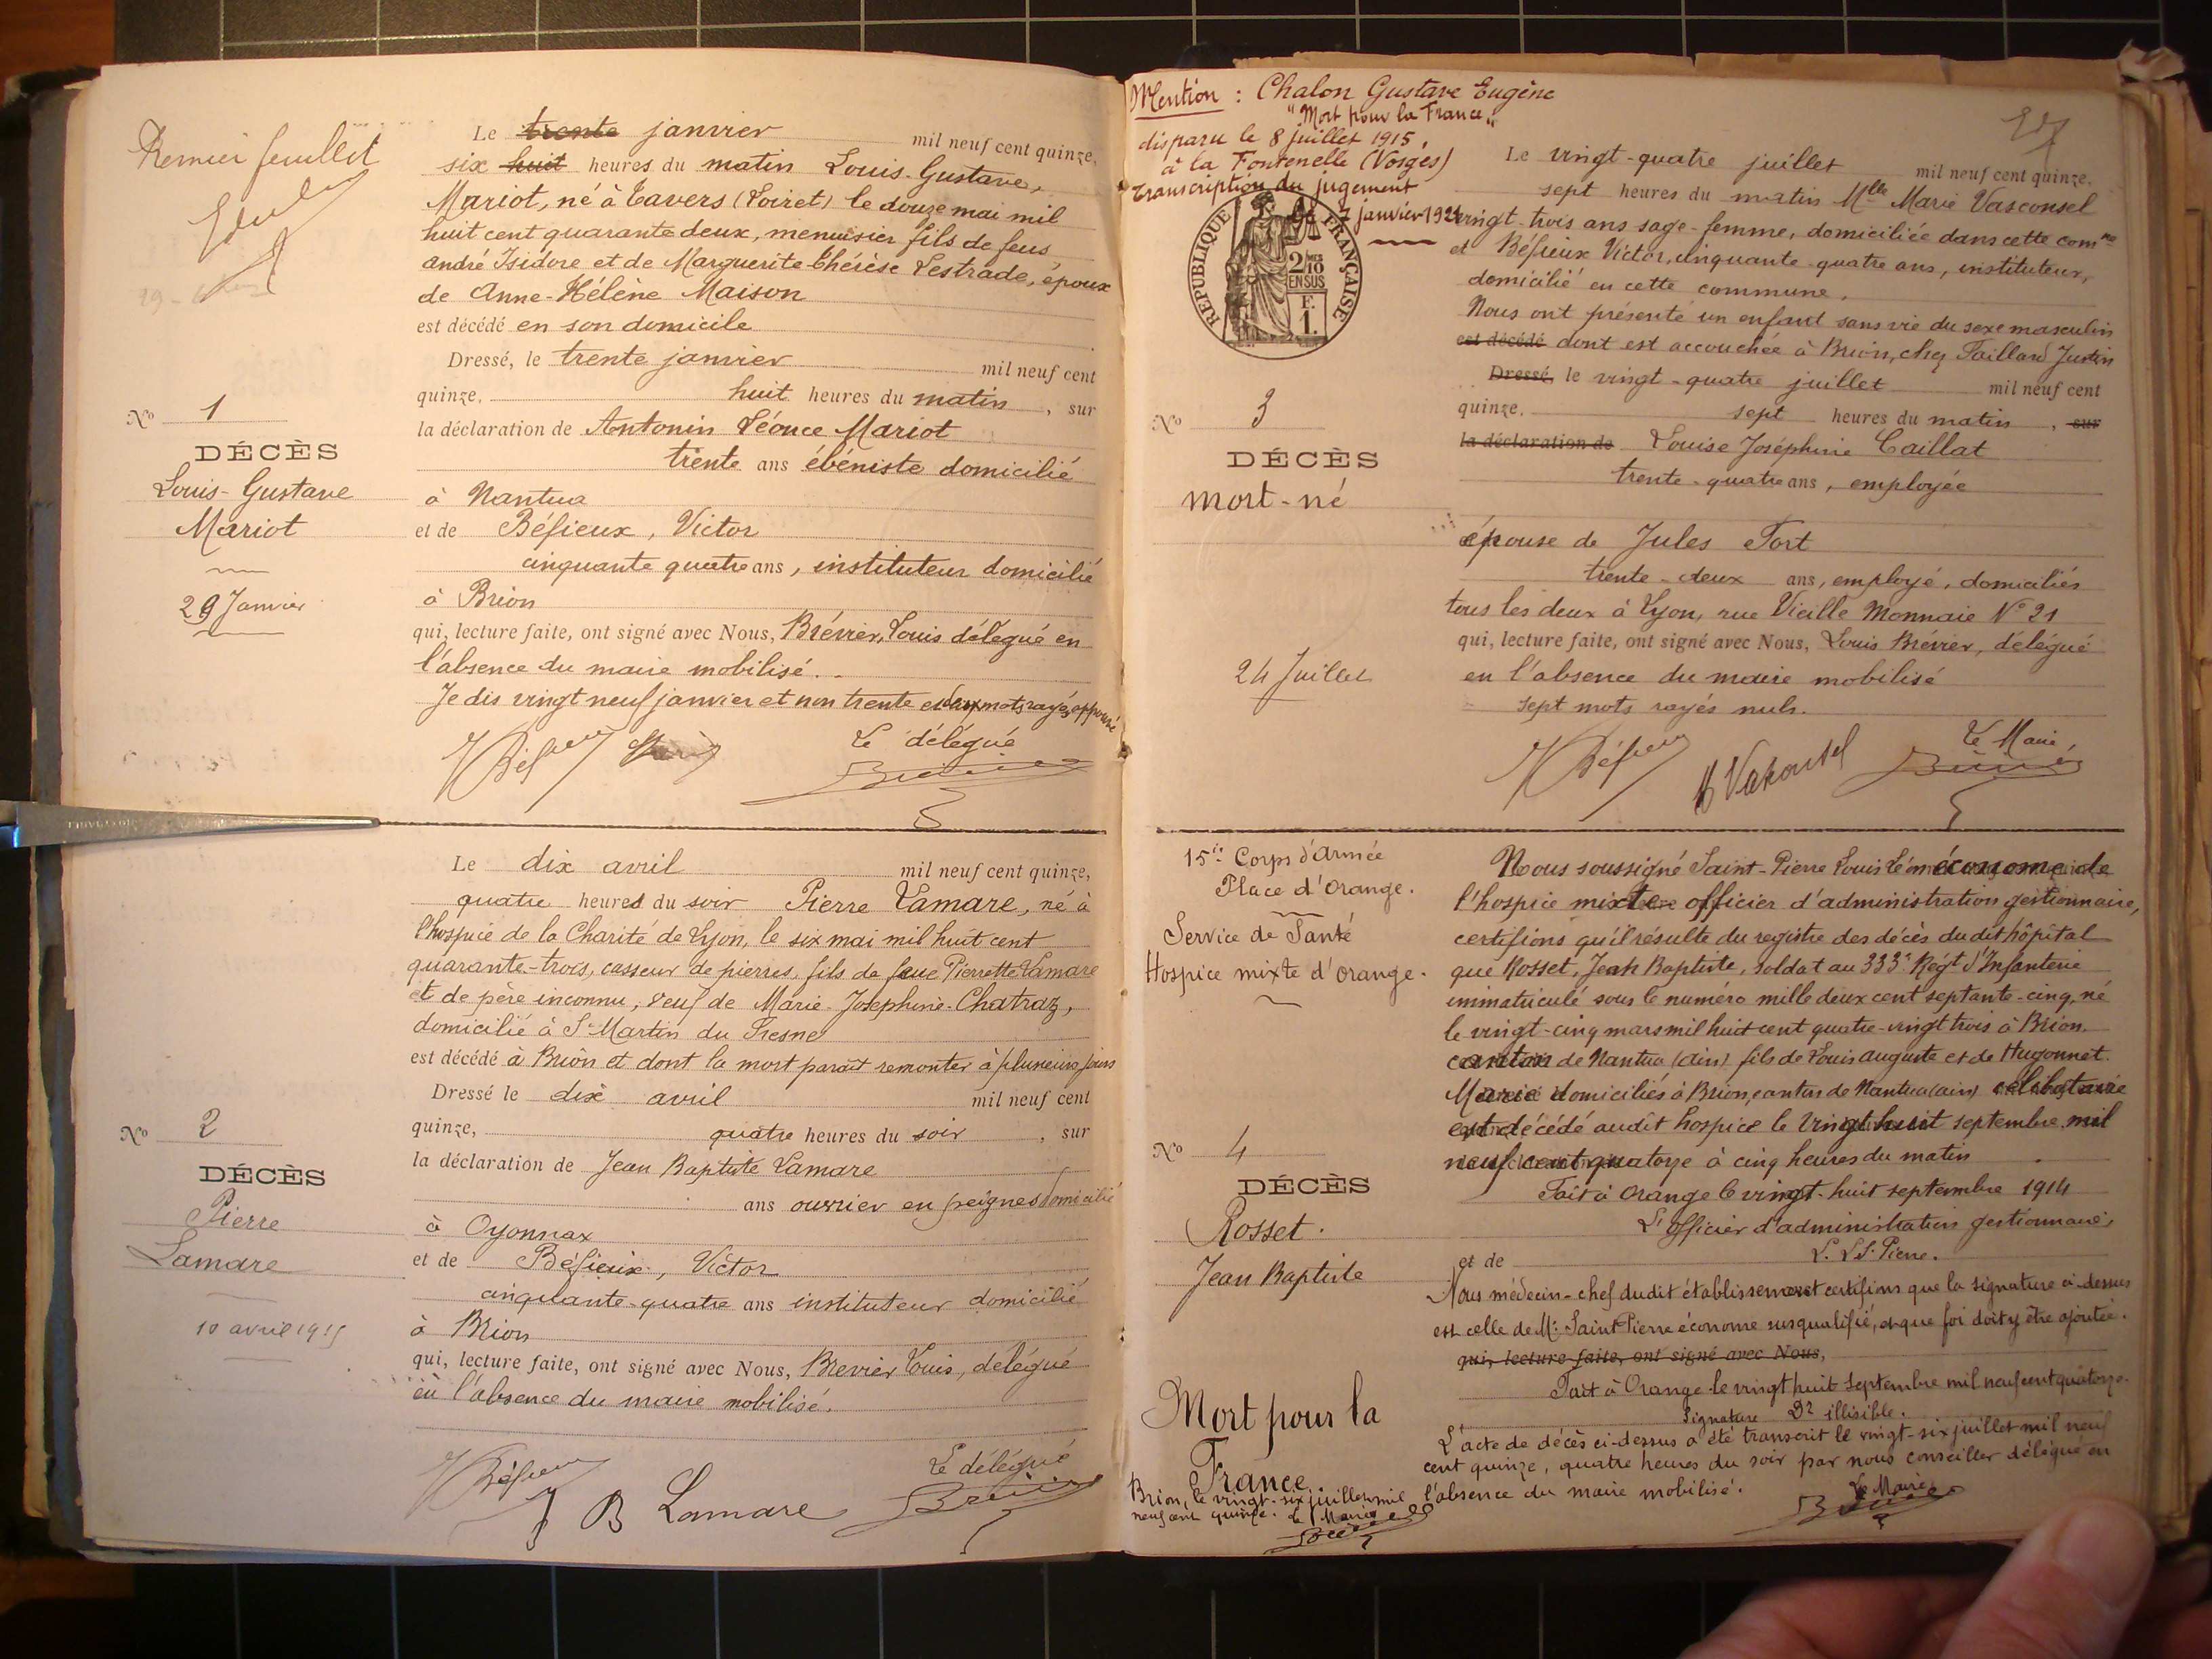 Premier feuillet
Le trente janvier mil neuf cent quinze,
six huit heures du matin Louis-Gustave,
Mariot, né à Tavers (Loiret) le douze mai mil
huit cent quarante deux, menuisier fils de feus
André Isidore et de Marguerite-Thérèse Lestrade, époux
de Anne-Hélène Maison
est décédé en son domicile
Dressé, le trente janvier mil neuf cent
quinze, huit heures du matin, sur
la déclaration de Antonin Léonce Mariot
trente ans ébéniste domicilié
à Nantua
et de Béfieux, Victor
cinquante quatre ans, instituteur domicilié
à Brion
qui, lecture faite, ont signé avec Nous, Brévier, Louis délégué en
l'absence du maire mobilisé.
Je dis vingt neuf janvier et non trente et deux mots rayés approuvé
Le délégué
No 1
DÉCÈS
Louis-Gustave
Mariot
29 Janvier
Le dix avril mil neuf cent quinze,
quatre heures du soir Pierre Lamare, né à
l'hospice de la Charité de Lyon, le six mai mil huit cent
quarante-trois, casseur de pierres, fils de feue Pierrette Lamare
et de père inconnu, veuf de Marie-Joséphine-Chatraz,
domicilié à St Martin du Fresne
est décédé à Brion et dont la mort paraît remonter à plusieurs jours
Dressé le dix avril mil neuf cent
quinze, quatre heures du soir, sur
la déclaration de Jean Baptiste Lamare
ans ouvrier en peignes domicilié
à Oyonnax
et de Béfieux, Victor
cinquante-quatre ans instituteur domicilié
à Brion
qui, lecture faite, ont signé avec Nous, Brevier Louis, délégué
en l'absence du maire mobilisé.
Le délégué
J B Lamare
No 2
DÉCÈS
Pierre
Lamare
10 avril 1915
Mention : Chalon Gustave Eugène
"Mort pour la France"
disparu le 8 juillet 1915,
à la Fontenelle (Vosges)
Transcription du jugement
7 janvier 1921
RÉPUBLIQUE FRANÇAISE
2/10
EN SUS
F.
1.
Le vingt-quatre juillet mil neuf cent quinze,
sept heures du matin Mlle Marie Vasconsel
vingt-trois ans sage-femme, domiciliée dans cette comne
et Béfieux Victor, cinquante-quatre ans, instituteur,
domicilié en cette commune,
Nous ont présenté un enfant sans vie du sexe masculin
est décédé dont est accouchée à Brion, chez Taillard Justin
Dressé, le vingt-quatre juillet mil neuf cent
quinze, sept heures du matin, sur
la déclaration de Louise Joséphine Caillat
trente-quatre ans, employée
épouse de Jules Tort
trente-deux ans, employé, domiciliés
tous les deux à Lyon, rue Vieille Monnaie No 21
qui, lecture faite, ont signé avec Nous, Louis Brévier, délégué
en l'absence du maire mobilisé
sept mots rayés nuls.
Le Maire,
No 3
DÉCÈS
mort-né
24 Juillet
15e Corps d'Armée
Place d'Orange.
Service de Santé
Hospice mixte d'Orange.
Nous soussigné Saint-Pierre Louis Léon économe de
l'hospice mixte officier d'administration gestionnaire,
certifions qu'il résulte du registre des décès du dit hôpital
que Rosset, Jean Baptiste, soldat au 333e Régt d'Infanterie
immatriculé sous le numéro mille deux cent septante-cinq, né
le vingt-cinq mars mil huit cent quatre-vingt trois à Brion
canton de Nantua (Ain) fils de Louis Auguste et de Hugonnet
Marie domiciliés à Brion, canton de Nantua (Ain) célibataire
est décédé audit hospice le vingt huit septembre mil
neuf cent quatorze à cinq heures du matin
Fait à Orange le vingt-huit septembre 1914
L'Officier d'administration gestionnaire,
et de L. St. Pierre.
Nous médecin-chef dudit établissement certifions que la signature ci-dessus
est celle de Mr Saint-Pierre économe susqualifié, et que foi doit y être ajoutée.
qui, lecture faite, ont signé avec Nous,
Fait à Orange le vingt huit Septembre mil neuf cent quatorze.
Signature Dr illisible.
L'acte de décès ci-dessus a été transcrit le vingt-six juillet mil neuf
cent quinze, quatre heures du soir par nous conseiller délégué en
l'absence du maire mobilisé.
Le Maire
No 4
DÉCÈS
Rosset.
Jean Baptiste
Mort pour la
France.
Brion, le vingt-six juillet mil
neuf cent quinze. Le Maire